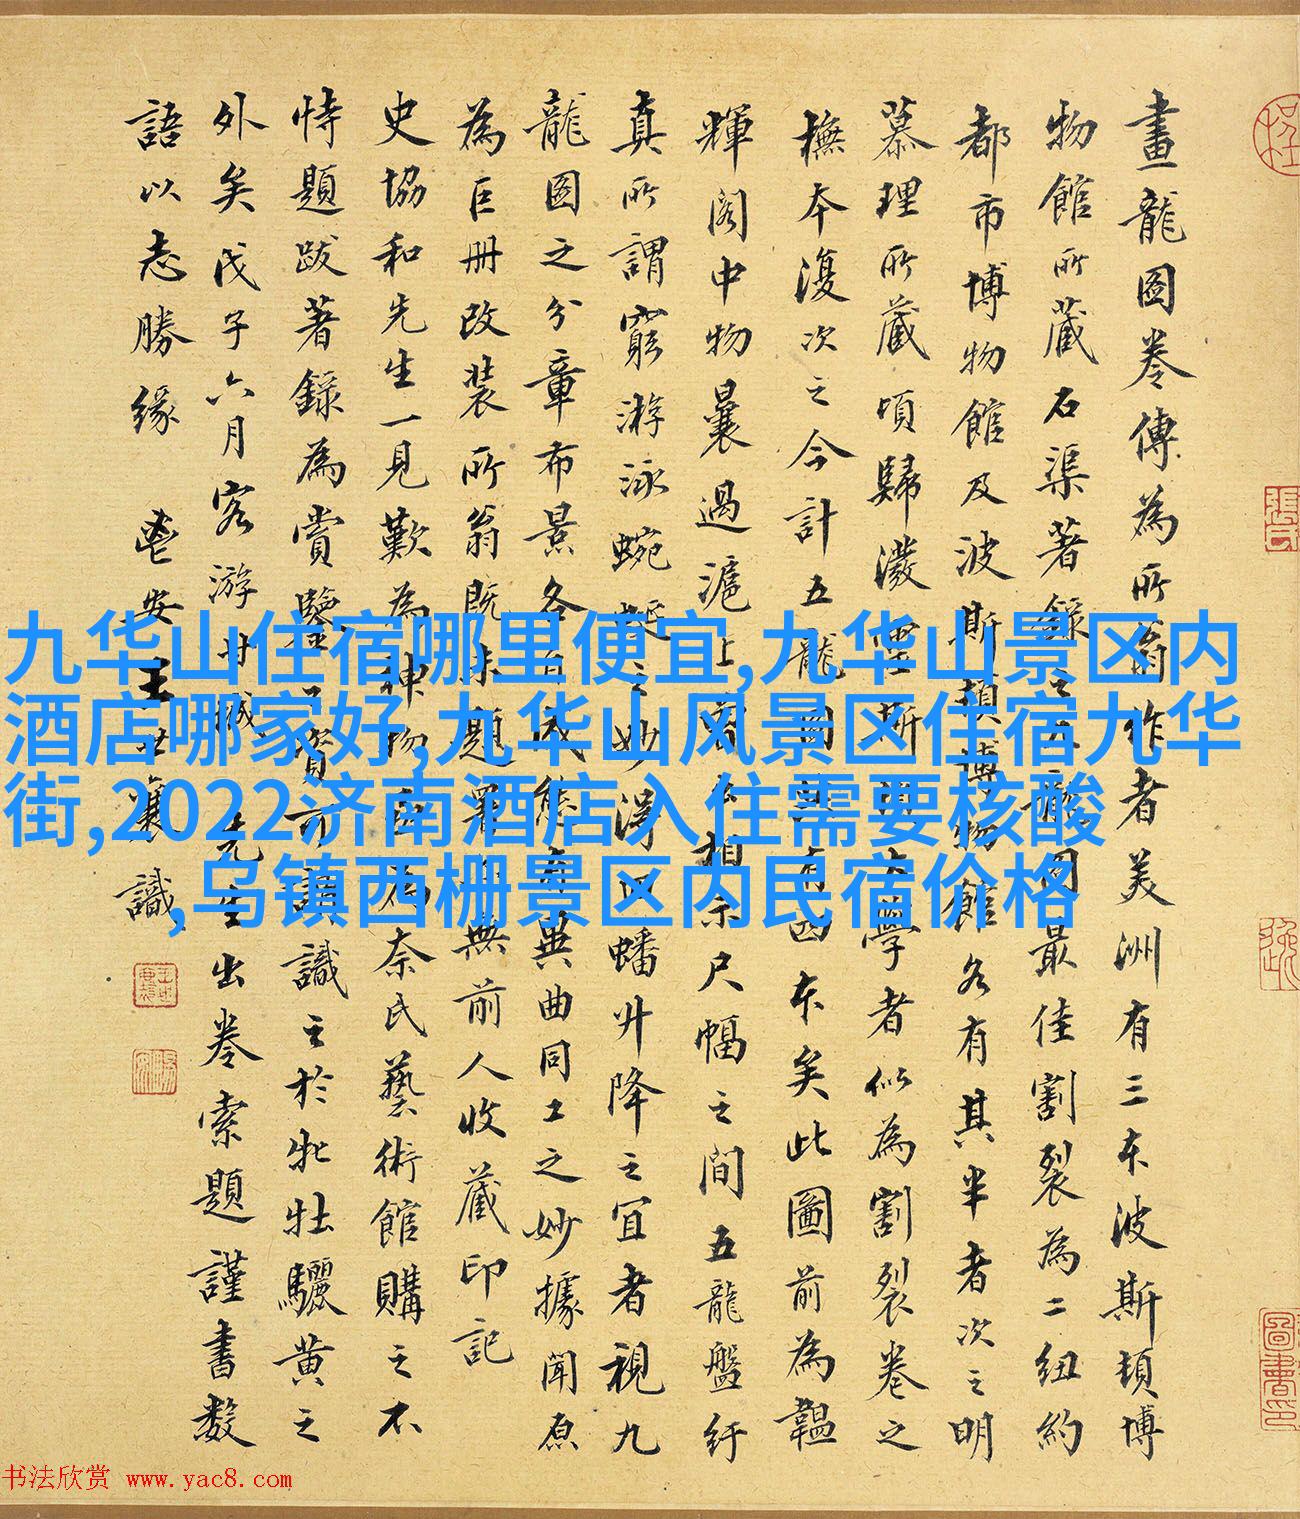 畫龍圖卷傳為所翁作者美洲有三本波斯頓博
物館所藏石渠著錄之九龍圖最佳割裂為二紐約
都市博物館及波斯頓博物館各有其半者次之明
慕理所藏頃歸瀲
撫本復次之今計五龍圖
有四本矣此圖前為韞
輝閣中物曩過滬上
尺幅之間五龍盤紆
真所謂窮游泳蜿蜒之妙得
蟠升降之宜者視九
龍圖之分章布景各自成態
異曲同工之妙據聞原
為巨冊改裝所翁既未題署
無前人收藏印記
史協和先生一見歎為神物
為奈氏藝術館購之不
恃題跋著錄為賞鑒之資
識之於牝牡驪黃之
外矣戊子六月客游
先生出卷索題謹書數
語以志勝緣 鬯安王世襄識
九华山住宿哪里便宜,九华山景区内
酒店哪家好,九华山风景区住宿九华
街,2022济南酒店入住需要核酸
,乌镇西栅景区内民宿价格
书法欣赏 www.yac8.com